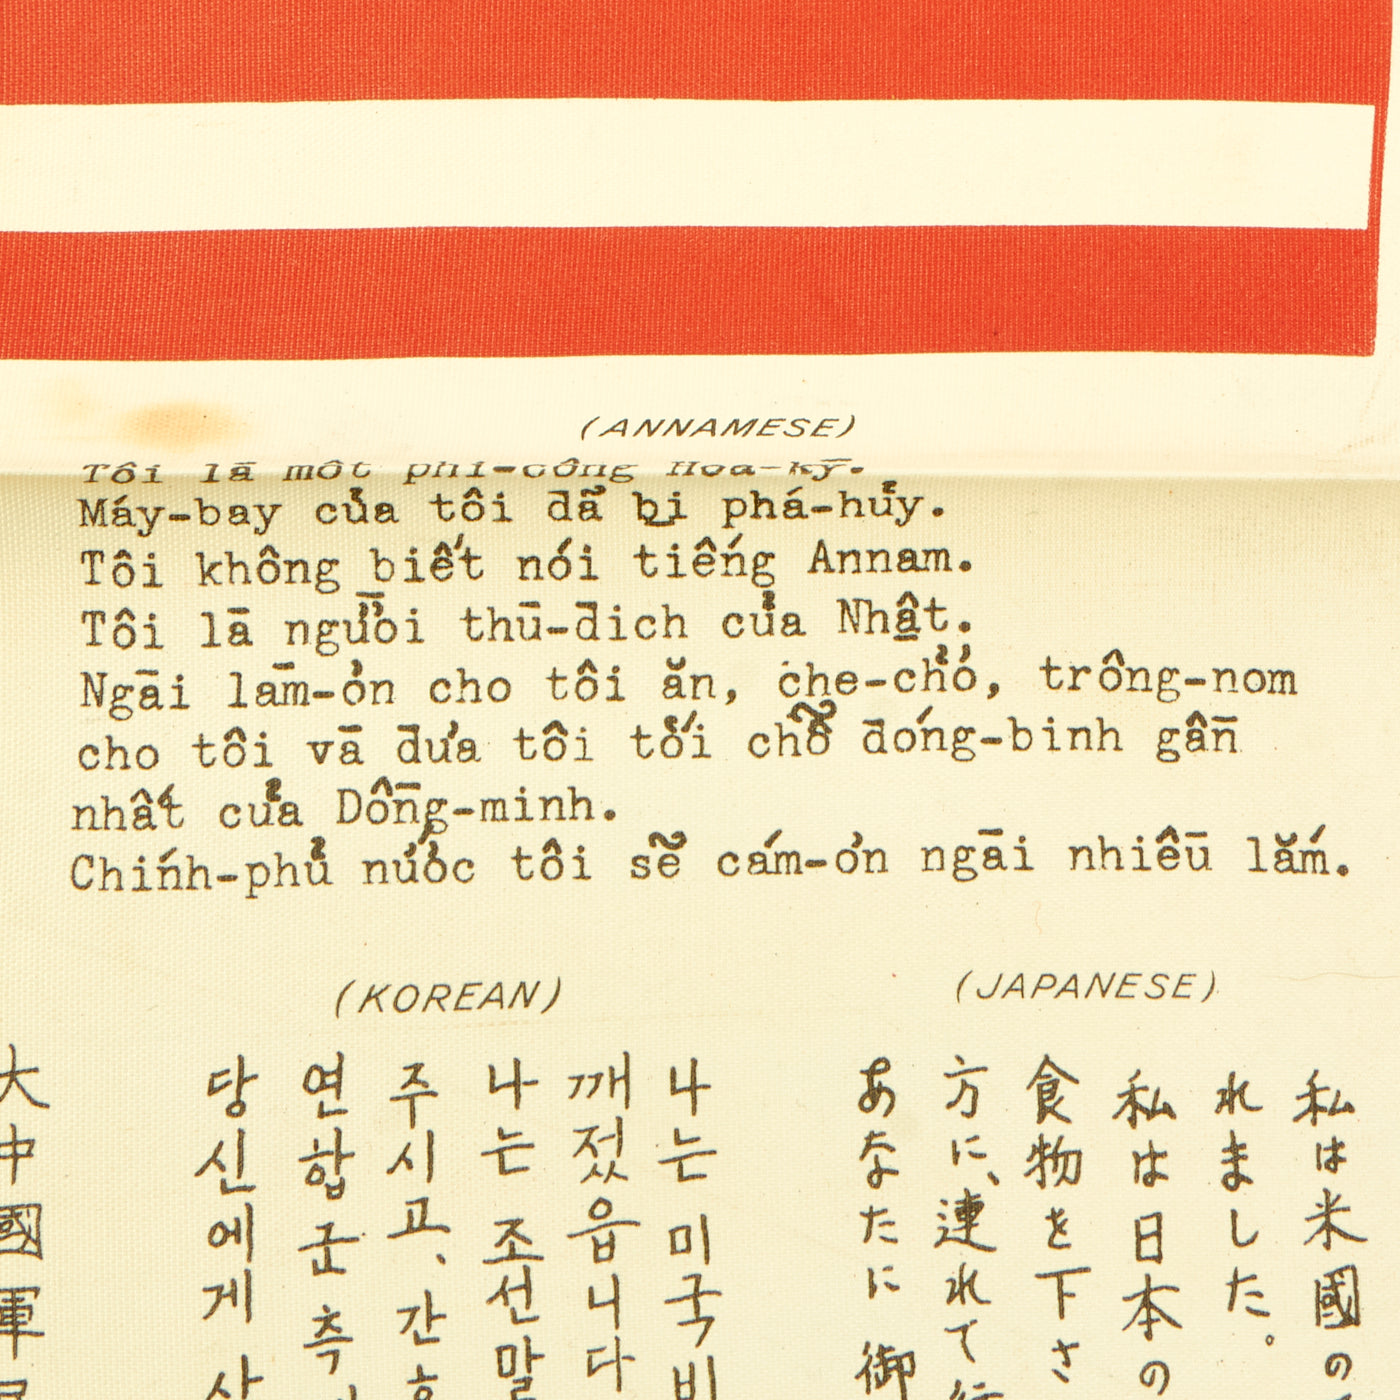 (ANNAMESE)
Tôi lā môt phi-công Hoa-kȳ.
Máy-bay của tôi đã bị phá-hủy.
Tôi không biết nói tiếng Annam.
Tôi lā người thū-đich của Nhật.
Ngāi lām-ơn cho tôi ăn, che-chở, trông-nom
cho tôi vā đưa tôi tới chỗ đóng-binh gần
nhất của Dồng-minh.
Chính-phủ nước tôi sẽ cám-ơn ngāi nhiều lắm.
(KOREAN)
(JAPANESE)
私は米國の
れました。
私は日本の
食物を下さ
方に、連れて
あなたに御
나는 미국비
깨젔읍니다
나는 조선말
주시고、간호
연합군측
당신에게 사
大中國軍